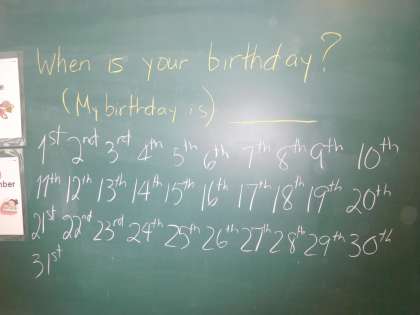 When is your birthday?
(My birthday is) ________
1st 2nd 3rd 4th 5th 6th 7th 8th 9th 10th
11th 12th 13th 14th 15th 16th 17th 18th 19th 20th
21st 22nd 23rd 24th 25th 26th 27th 28th 29th 30th
31st